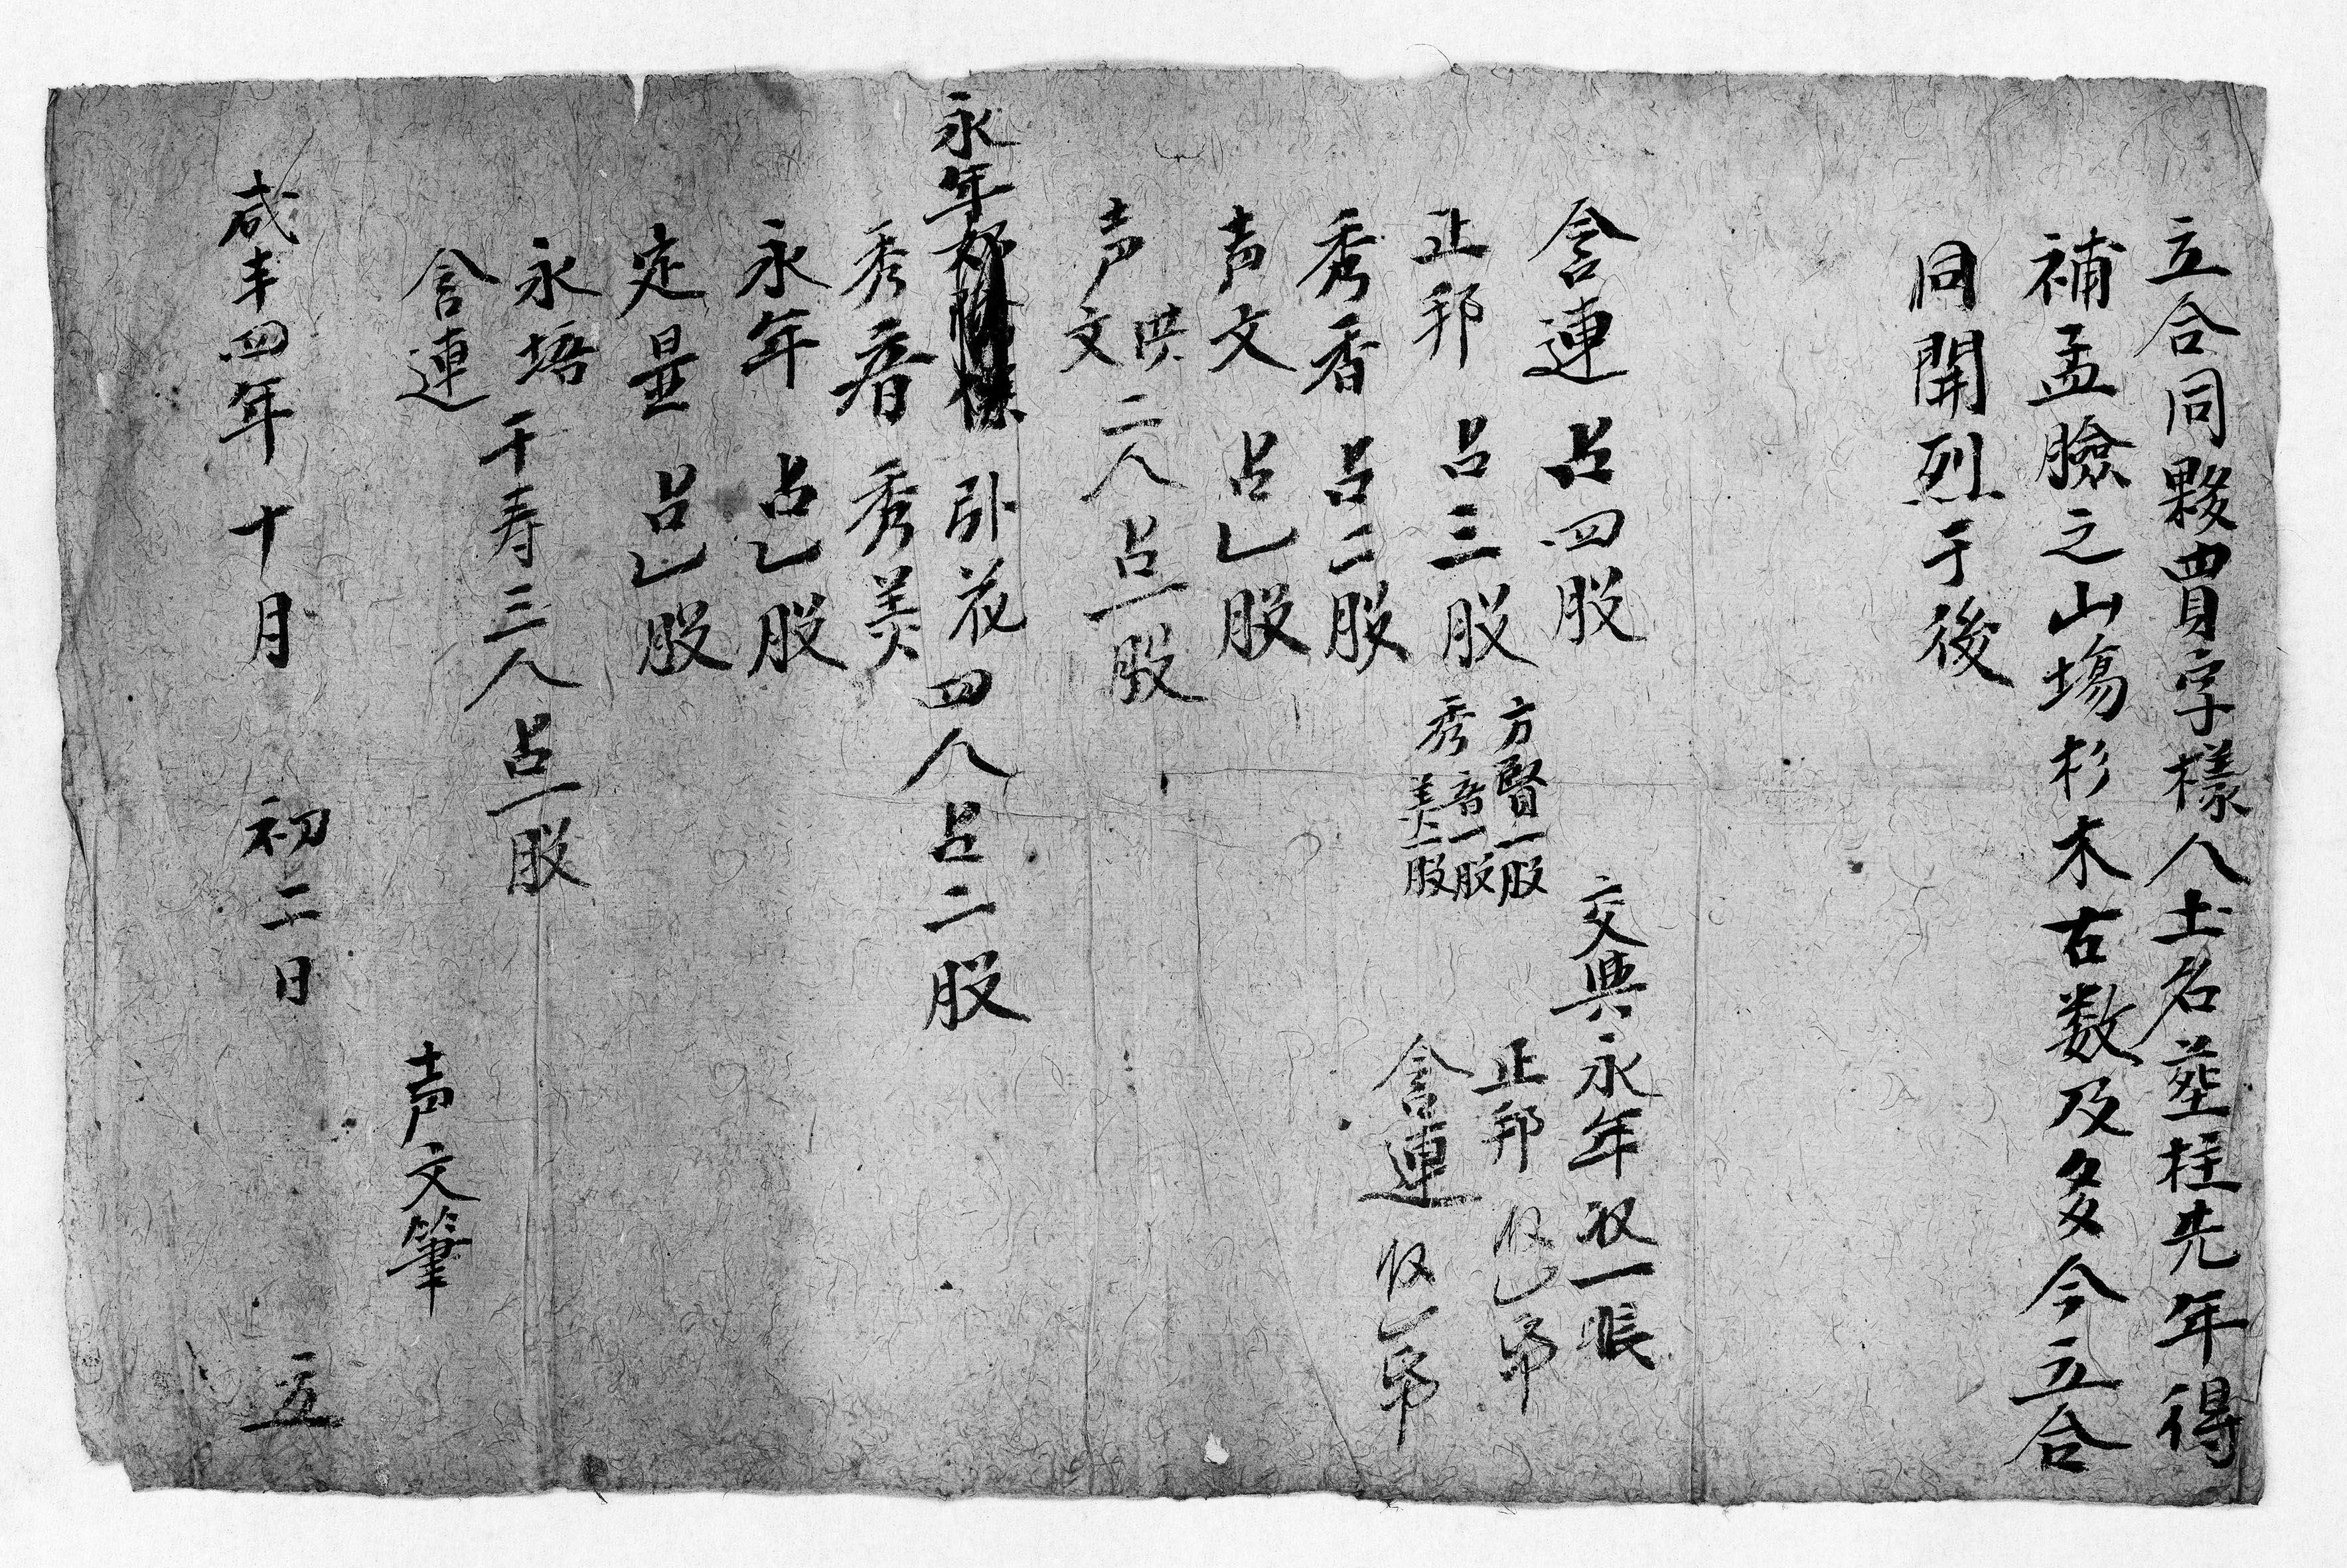 立合同夥買字樣人土名塟柱先年得
補孟臉之山塲杉木古数及多今立合
同開烈于後
含連占四股
正邦占三股
方賢一股
秀音一股
美一股
秀香占二股
声文占乙股
声洪文二人占一股
永年 引花四人占二股
秀音秀美
永年占乙股
定显占乙股
永培
千寿三人占一股
含連
交與永年收一張
正邦收乙帋
含連收乙帋
声文筆
咸丰四年十月初二日 立